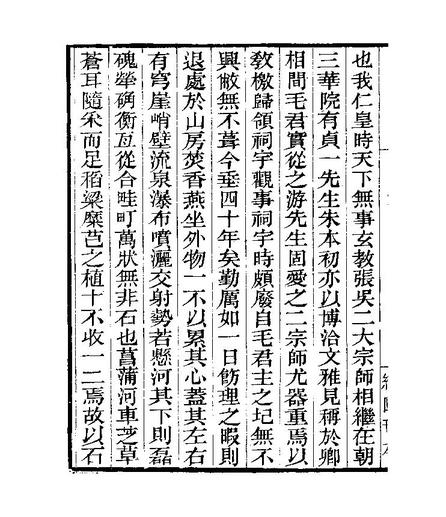 也我仁皇時天下無事玄教張吳二大宗師相繼在朝
三華院有貞一先生朱本初亦以博洽文雅見稱於卿
相間毛君實從之游先生固愛之二宗師尤器重焉以
敎檄歸領祠宇觀事祠宇時頗廢自毛君主之圮無不
興敝無不葺今垂四十年矣勤厲如一日飭理之暇則
退處於山房焚香燕坐外物一不以累其心蓋其左右
有穹崖峭壁流泉瀑布噴灑交射勢若懸河其下則磊
磈犖确衡亙從合畦町萬狀無非石也菖蒲河車芝草
蒼耳隨采而足稻粱穈芑之植十不收一二焉故以石